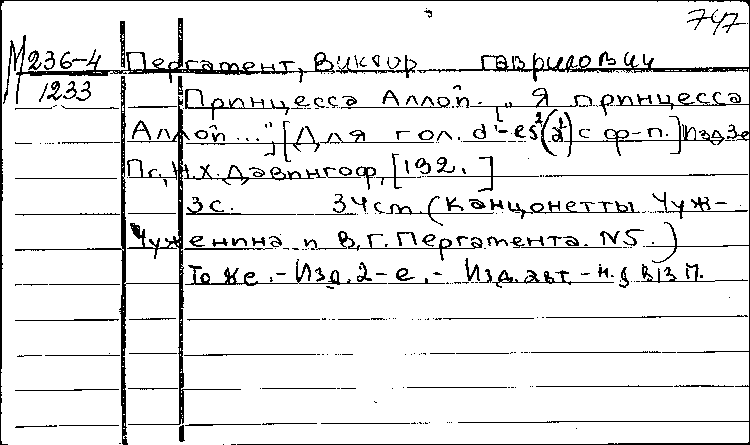 747
М236-4 Пергамент, Виктор Гаврилович
1233
Принцесса Аллой. „Я принцесса
Аллой...“, [Для гол. d¹-es²(a²) с ф-п.] Изд. 3е
Пг., Н.Х. Давингоф, [192. ]
3с. 34cm (Канцонетты Чуж-
Чуженина и В.Г. Пергамента. N5.)
То же. - Изд. 2-е. - Изд. авт. - н.д.